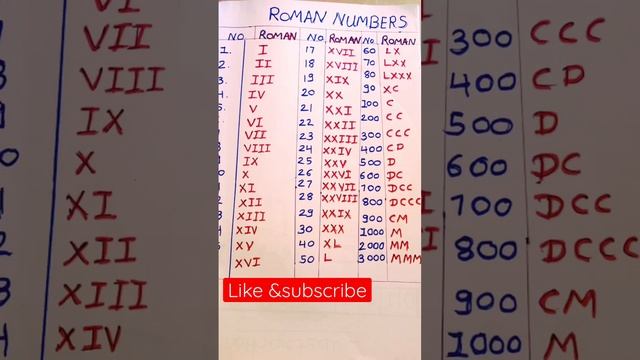 VI
VII
VIII
IX
X
XI
XII
XIII
XIV
ROMAN NUMBERS
NO. ROMAN NO. ROMAN NO. ROMAN
1. I 17 XVII 60 LX
2. II 18 XVIII 70 LXX
3. III 19 XIX 80 LXXX
4. IV 20 XX 90 XC
5. V 21 XXI 100 C
VI 22 XXII 200 CC
VII 23 XXIII 300 CCC
VIII 24 XXIV 400 CD
IX 25 XXV 500 D
X 26 XXVI 600 DC
XI 27 XXVII 700 DCC
XII 28 XXVIII 800 DCCC
XIII 29 XXIX 900 CM
XIV 30 XXX 1000 M
XV 40 XL 2000 MM
XVI 50 L 3000 MMM
Like &subscribe
300 CCC
400 CD
500 D
600 DC
700 DCC
800 DCCC
900 CM
1000 M